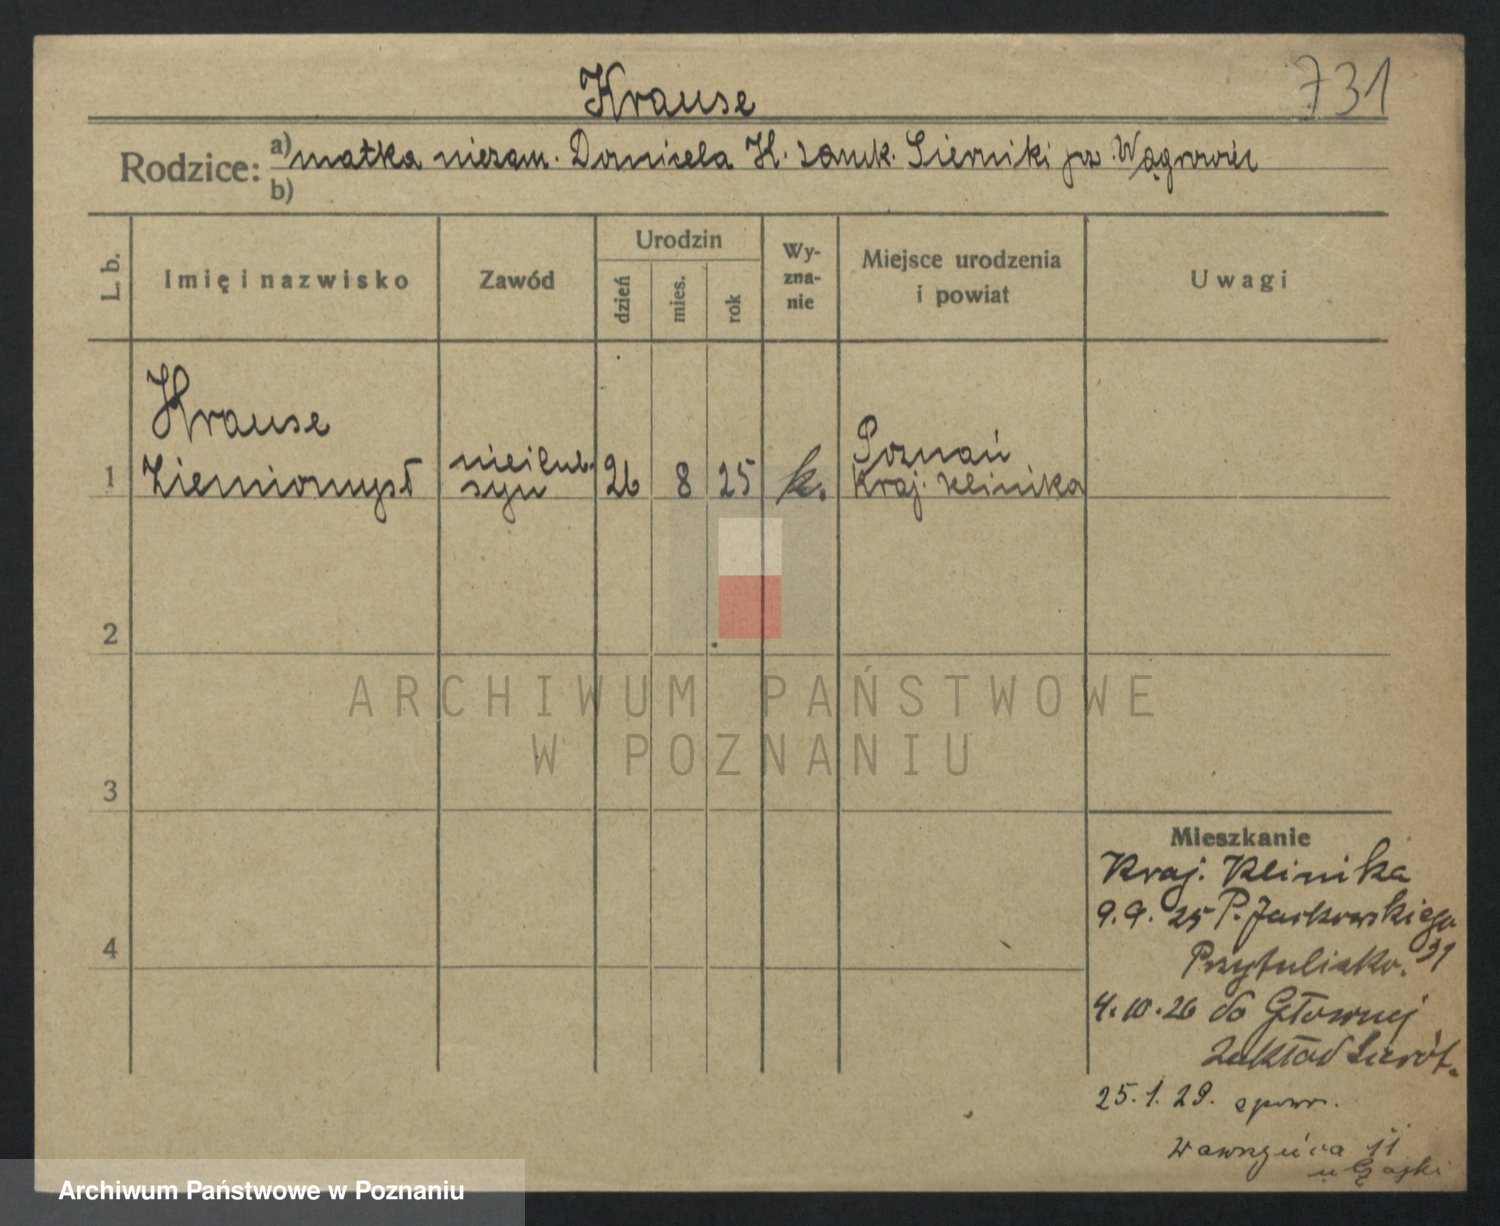 731
Krause
Rodzice: a) matka niezam. Domicela K. zamk. Sierniki pw. Wągrowiec
b)
L. b.
Imię i nazwisko
Zawód
Urodzin
dzień
mies.
rok
Wy-
zna-
nie
Miejsce urodzenia
i powiat
Uwagi
Krause
1 Ziemiomysł
nieślub.
syn
26 8 25 k.
Poznań
Kraj. klinika
2
3
4
Mieszkanie
Kraj. Klinika
9.9.25 P. Jackowskiego
Przytulisko. 31
4.10.26 do Głownej
Zakład Sierót.
25.1.29.
Wawrzyńca 11
ARCHIWUM PAŃSTWOWE
W POZNANIU
Archiwum Państwowe w Poznaniu